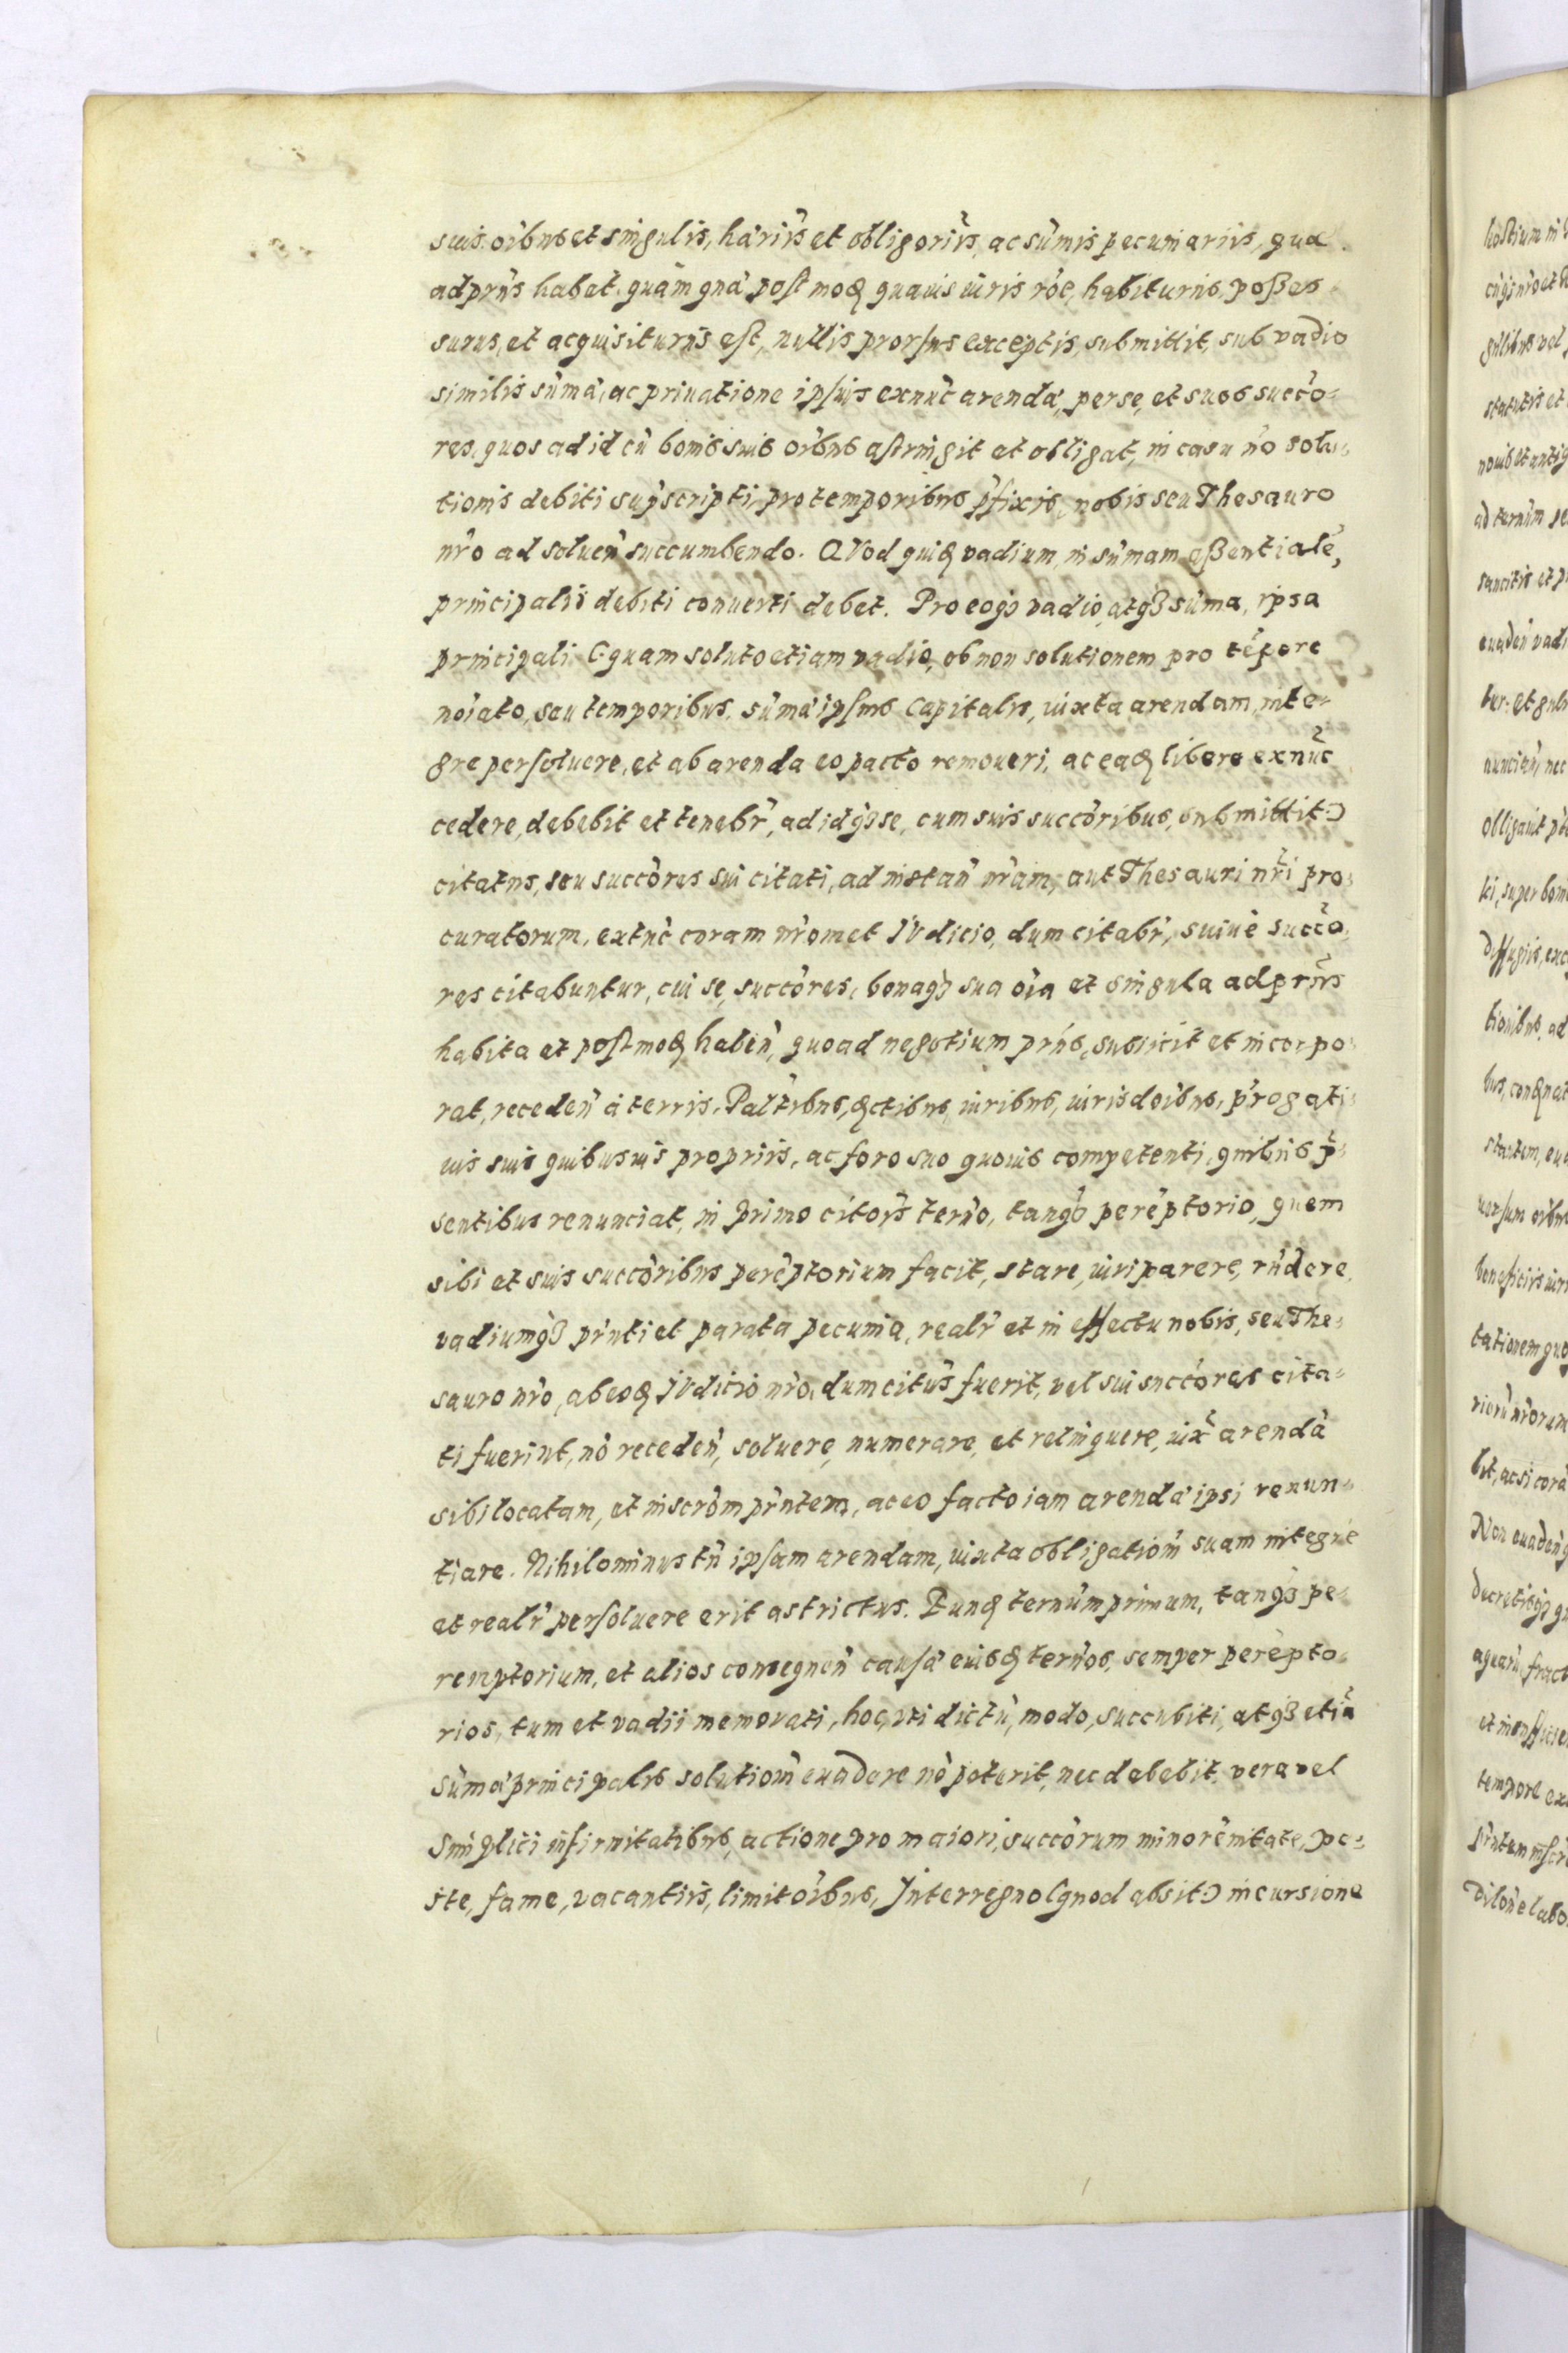 suis oîbus et singulis, hãriis et obligoriîs, ac sûmis pecuniariis, quæ
ad prñs habet. quàm gña' post moꝗ quauis iuris rôe, habiturus, posses-
surus, et acquisiturus est, nullis prorsus exceptis, submittit, sub vadio
similis sûmæ, ac priuatione ipsuis exnûc arendæ, perse, et suos succô-
res, quos ad id cû bonis suis oîbus astringit et obligat, in casu nô solu-
tionis debiti supscripti, pro temporibus p̃fixis, nobis seu Thesauro
nr̃o ad soluen̂ succumbendo. QVod quiꝗ vadium, in sûmam essentialẽ,
principalis debiti conuerti debet. Pro eoqʒ vadio, atqʒ sûma, ipsa
principali (quam soluto etiam vadio, ob non solutionem pro tẽpore
noîato, seu temporibus, sûmã ipsius capitalis, iuxta arendam, inte-
gre persoluere, et ab arenda eo pacto remoueri, ac eaꝗ libere exnûc
cedere, debebit et tenebr̂, ad idqʒ se, cum suis succôribus, submittit)
citatus, seu succôres sui citati, ad instan̂ nr̂am, aut Thesauri nr̃i pro-
curatorum, extûc coram nr̂omet IVdicio, dum citabr̂, suiuè succô-
res citabuntur, cui se, succôres, bonaqʒ sua oîa et singula ad prñs
habita et post moꝗ haben̂, quo ad negotium prñs, subiicit et incorpo-
rat, receden̂ á terris, Paltr̂bus, ꝗctibus, iuribus, iurisdoîbus, p̂rogati-
uis suis quibusuis propriis, ac foro suo quouis competenti, quibus p̂-
sentibus renunciat, in primo citôis terño, tanqʒ perêptorio, quem
sibi et suis succôribus perêptorium facit, stare, iuri parere, rñdere,
vadiumqʒ prñti et parata pecunia, realr̂ et in effectu nobis, seu The-
sauro nr̂o, ab eoꝗ IVdicio nr̂o, dum citûs fuerit, vel sui succôres cita-
ti fuerint, nô receden̂, soluere, numerare, et relinquere, iux̂ arendã
sibi locatam, et inscrôm prñtem, ac eo facto iam arendæ ipsi renun-
tiare. Nihilominus tñ ipsam arendam, iuxta obligatiom̂ suam integrè
et realr̂ persoluere erit astrictus. Eunꝗ ternûm primum, tanqʒ pe-
remptorium, et alios consequen̂ causæ eiusꝗ terños, semper perêpto-
rios, tum et vadii memorati, hoc, vti dictû, modo, succubiti, atqʒ etiâ
sûmæ principalis solutiom̂ euadere nô poterit, nec debebit. vera vel
Simplici infirmitatibus, actione pro maiori, succôrum minorênitate, pe-
ste, fame, vacantiis, limitôibus, Interregno (quod absit) incursione